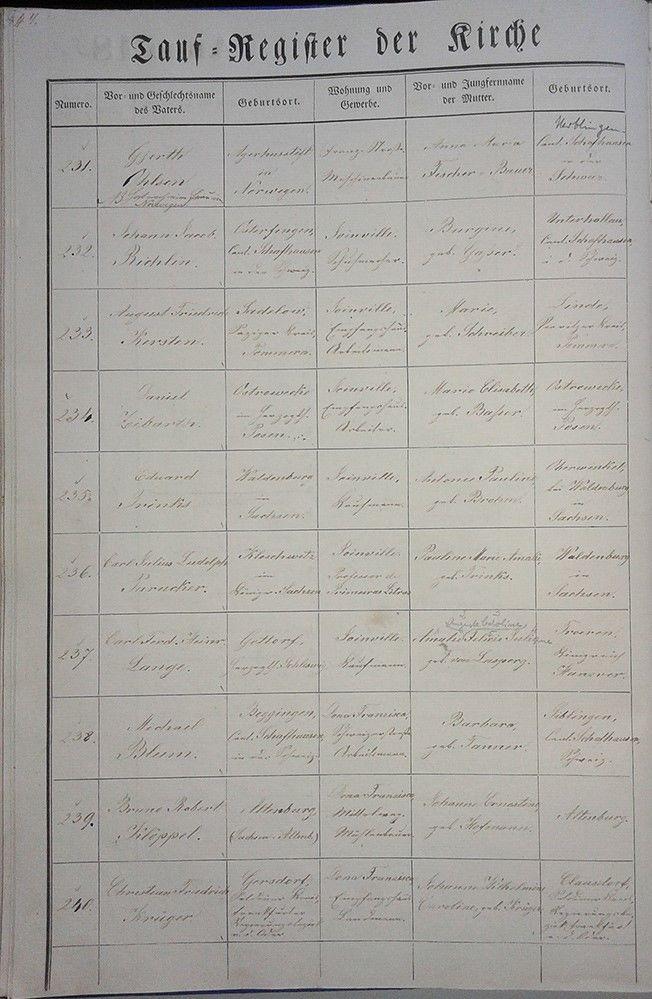 Tauf-Register der Kirche
Numero.
Vor- und Geschlechtsname
des Vaters.
Geburtsort.
Wohnung und
Gewerbe.
Vor- und Jungfernname
der Mutter.
Geburtsort.
231.
Gjerth
Ohlsen
in
Norwegen.
Straße
Maschinenbauer
Anna Maria
Fischer Bauer
Cant. Schafhausen
in der
Schweiz
232.
Johann Jacob
Richlin.
Osterfingen,
Cant. Schafhausen
in der Schweiz.
Joinville.
Schuhmacher.
geb. Gasser.
Unterhallau,
Cant. Schafhausen
i. d. Schweiz.
233.
August Friedrich
Kersten.
Kreis,
Pommern.
Joinville,
Empfangshaus
Arbeitsmann.
Marie,
geb. Schreiber.
Linde,
Kreis,
Pommern.
234.
Daniel
Ostrowecke
im Herzogth.
Posen.
Joinville,
Empfangshaus.
Arbeiter.
Marie Elisabeth,
geb. Basser.
Ostrowecke,
im Herzogth.
Posen.
235.
Eduard
Trinks
Waldenburg
in
Sachsen.
Joinville,
Kaufmann.
Antonie Pauline
geb.
Oberwinkel,
bei Waldenburg
in
Sachsen.
236.
Carl Julius Ludolph
Parucker.
im
Königr. Sachsen
Joinville
Professor de
Primeiras Letras
Pauline Marie Amalie
geb. Trinks.
Waldenburg
in
Sachsen.
237.
Carl Ferd. Heinr.
Lange.
Gottorf,
Herzogth. Schleswig
Joinville.
Kaufmann.
Auguste Caroline
Amalie
geb. von Lasperg.
Königreich
Hanover.
238.
Michael
Blum.
Beggingen,
Cant. Schafhausen
in der Schweiz.
Dona Francisca,
Schweizerstraße
Arbeitsmann.
Barbara,
geb. Tanner.
Siblingen,
Cant. Schafhausen,
Schweiz.
239.
Bruno Robert
Klöppel.
Altenburg
(Sachsen-Altenb.)
Dona Francisca
Mittelweg.
Mühlenbauer.
Johanne Ernestine,
geb. Hofmann.
Altenburg.
240.
Christian Friedrich
Krüger
Gersdorf,
Frankfurter
Regierungsbezirk
a. d. Oder.
Dona Francisca
Empfangshaus
Landmann.
Johanne Wilhelmine
Caroline, geb. Krüger.
Clausdorf,
a. d. Oder.